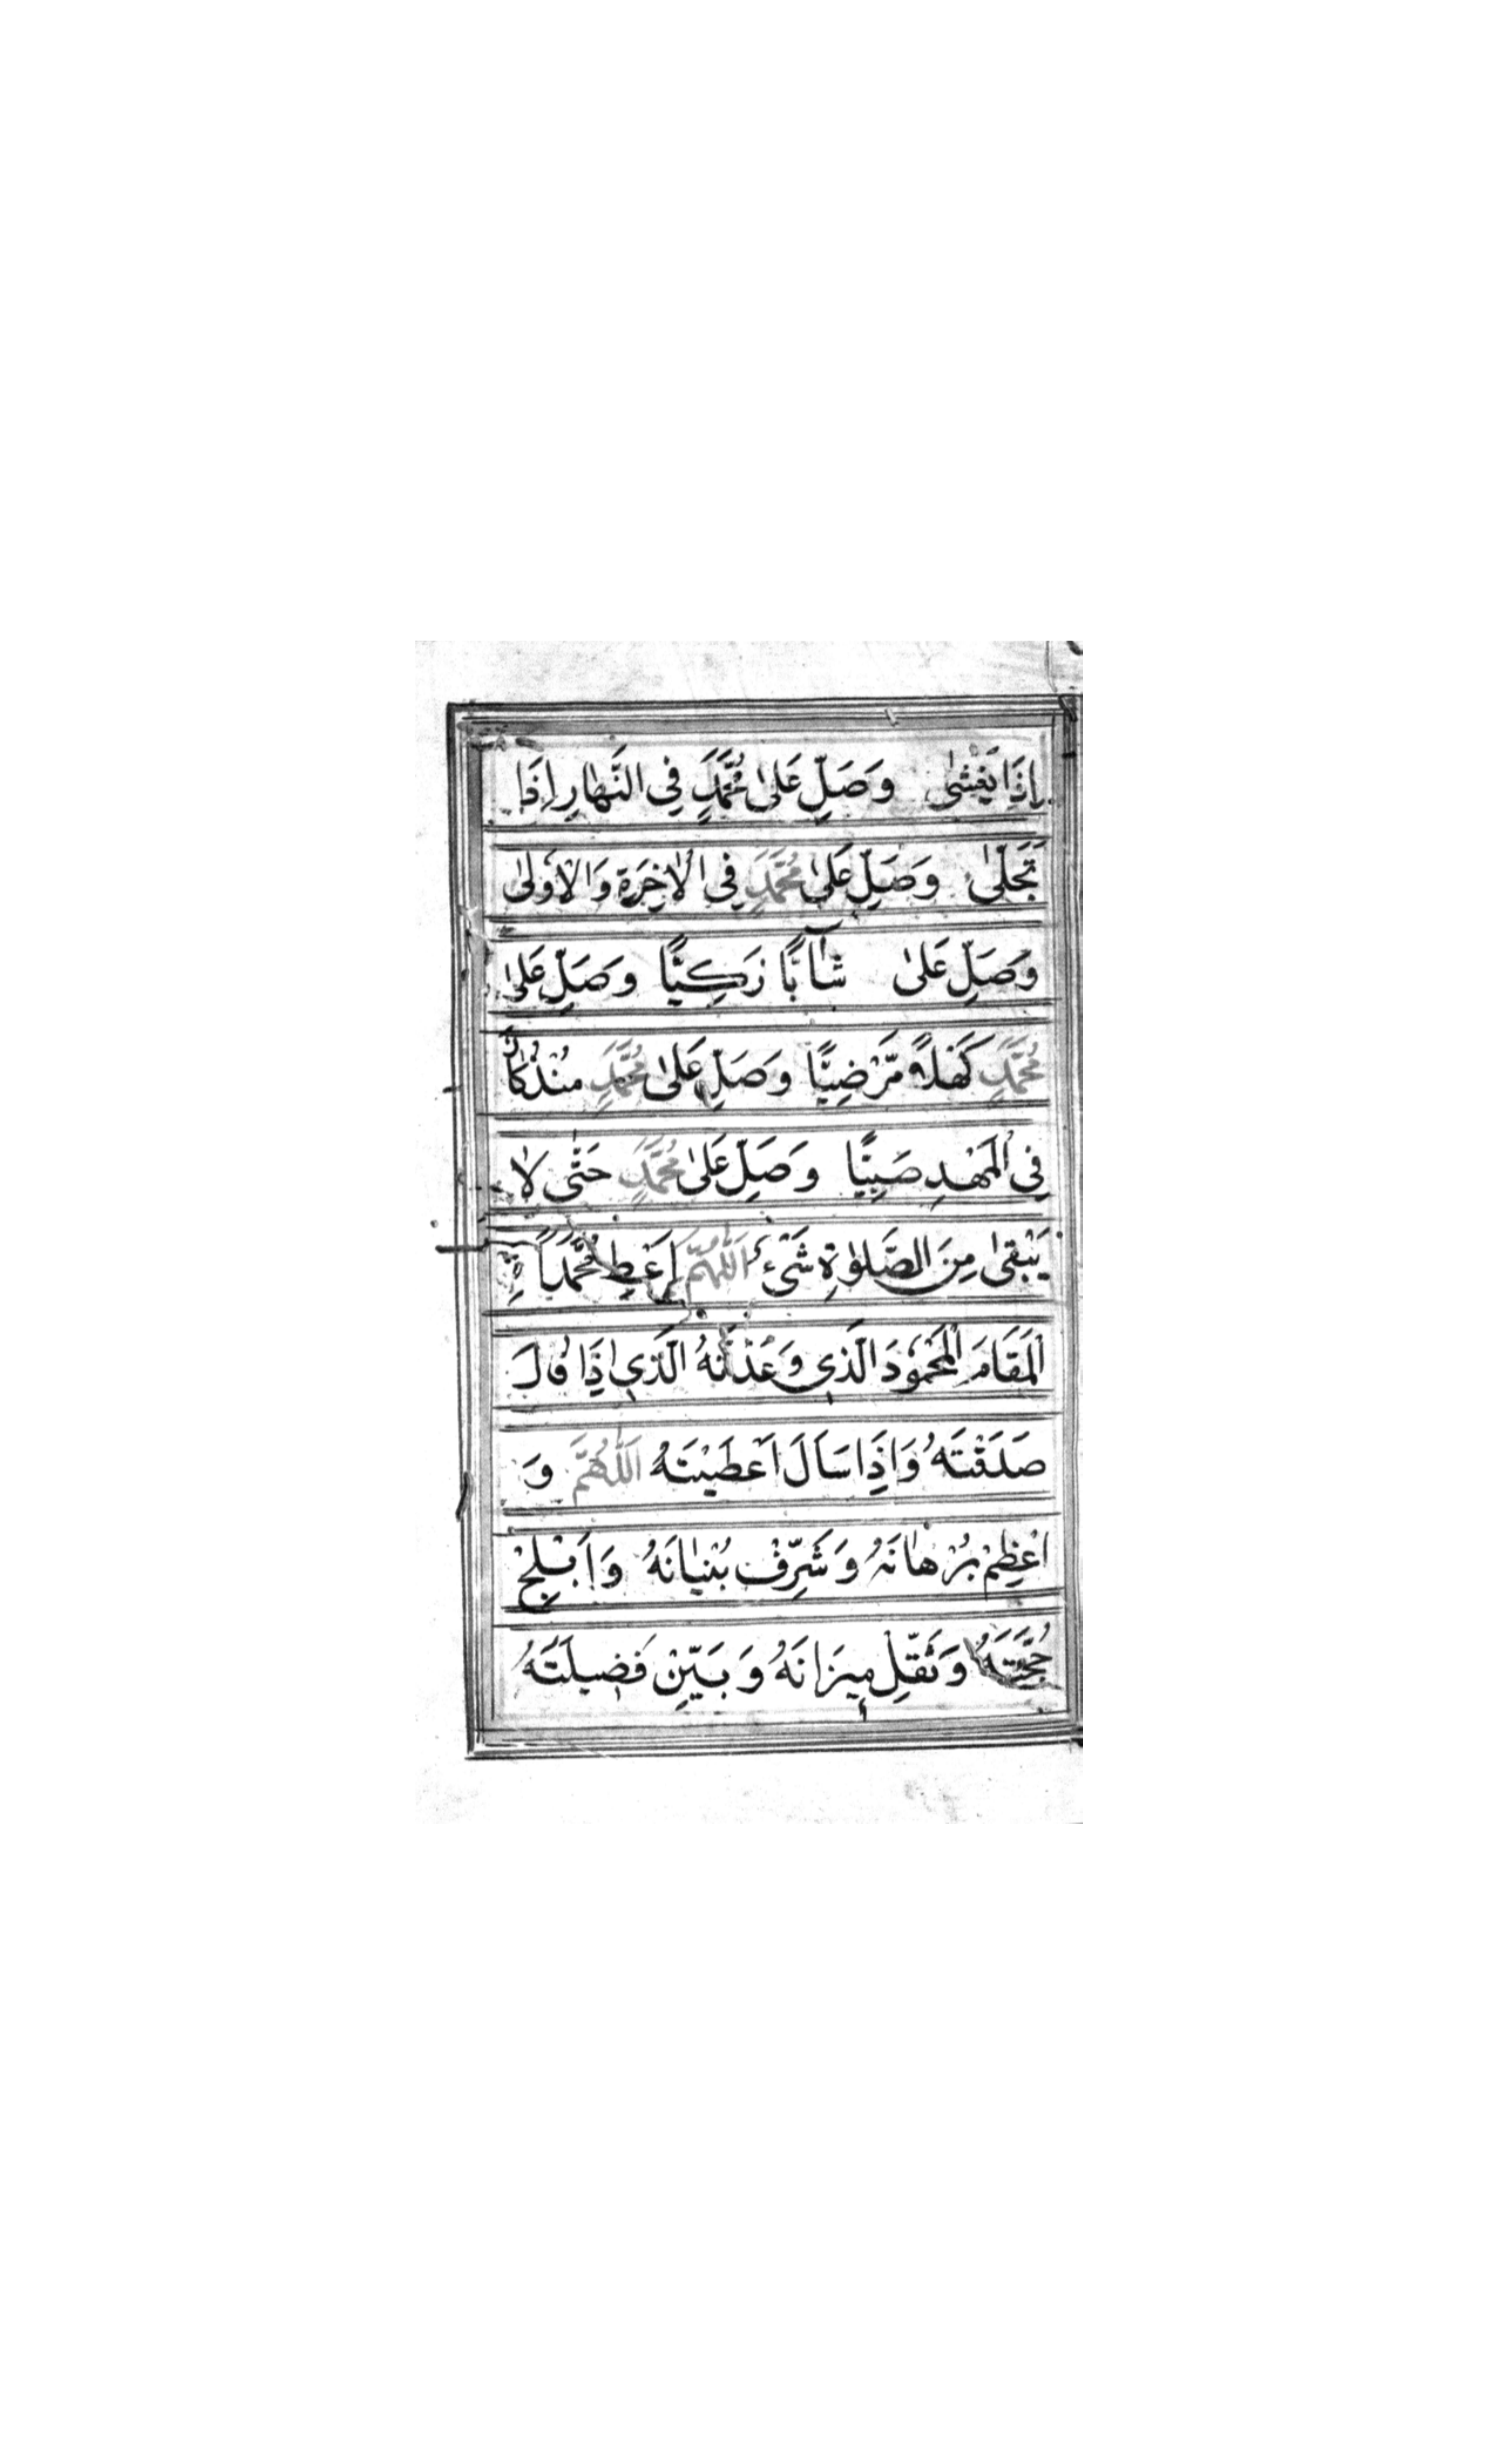 اِذَا يَغْشٰى وَصَلِّ عَلٰى مُحَمَّدٍ فِى النَّهَارِ اِذَا
تَجَلّٰى وَصَلِّ عَلٰى مُحَمَّدٍ فِى الْاٰخِرَةِ وَالْاُولٰى
وَصَلِّ عَلٰى شَآبًّا زَكِيًّا وَصَلِّ عَلٰى
مُحَمَّدٍ كَهْلًا مَّرْضِيًّا وَصَلِّ عَلٰى مُحَمَّدٍ مُنْذُ كَانَ
فِى الْمَهْدِ صَبِيًّا وَصَلِّ عَلٰى مُحَمَّدٍ حَتّٰى لَا
يَبْقٰى مِنَ الصَّلٰوةِ شَىْءٌ اَللّٰهُمَّ اَعْطِ مُحَمَّدًا
الْمَقَامَ الْمَحْمُوْدَ الَّذِى وَعَدْتَّهُ الَّذِى اِذَا قَالَ
صَدَقْتَهُ وَاِذَا سَاَلَ اَعْطَيْتَهُ اَللّٰهُمَّ وَ
اَعْظِمْ بُرْهَانَهُ وَشَرِّفْ بُنْيَانَهُ وَاَبْلِجْ
حُجَّتَهُ وَثَقِّلْ مِيزَانَهُ وَبَيِّنْ فَضِيلَتَهُ